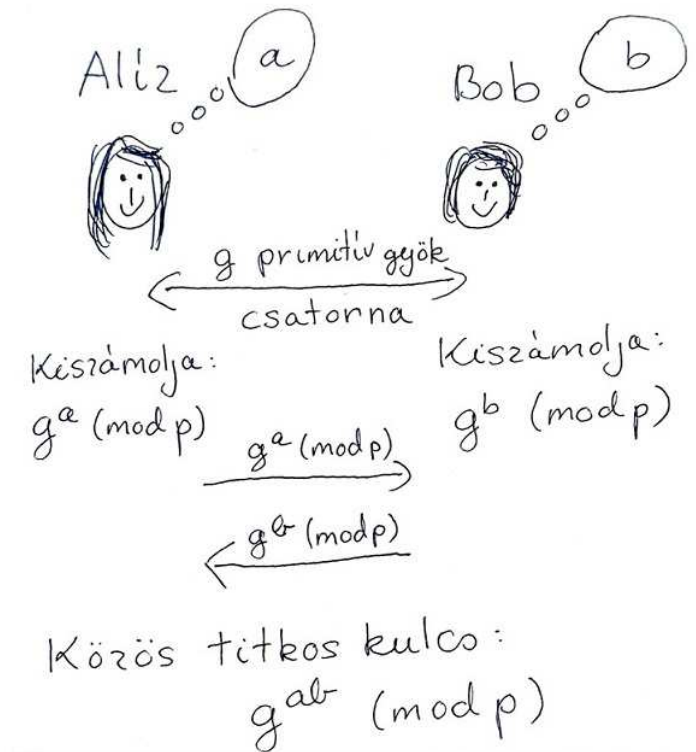 Alíz
a
Bob
b
g primitív gyök
csatorna
Kiszámolja:
g^a (mod p)
Kiszámolja:
g^b (mod p)
g^a (mod p)
g^b (mod p)
Közös titkos kulcs:
g^ab (mod p)